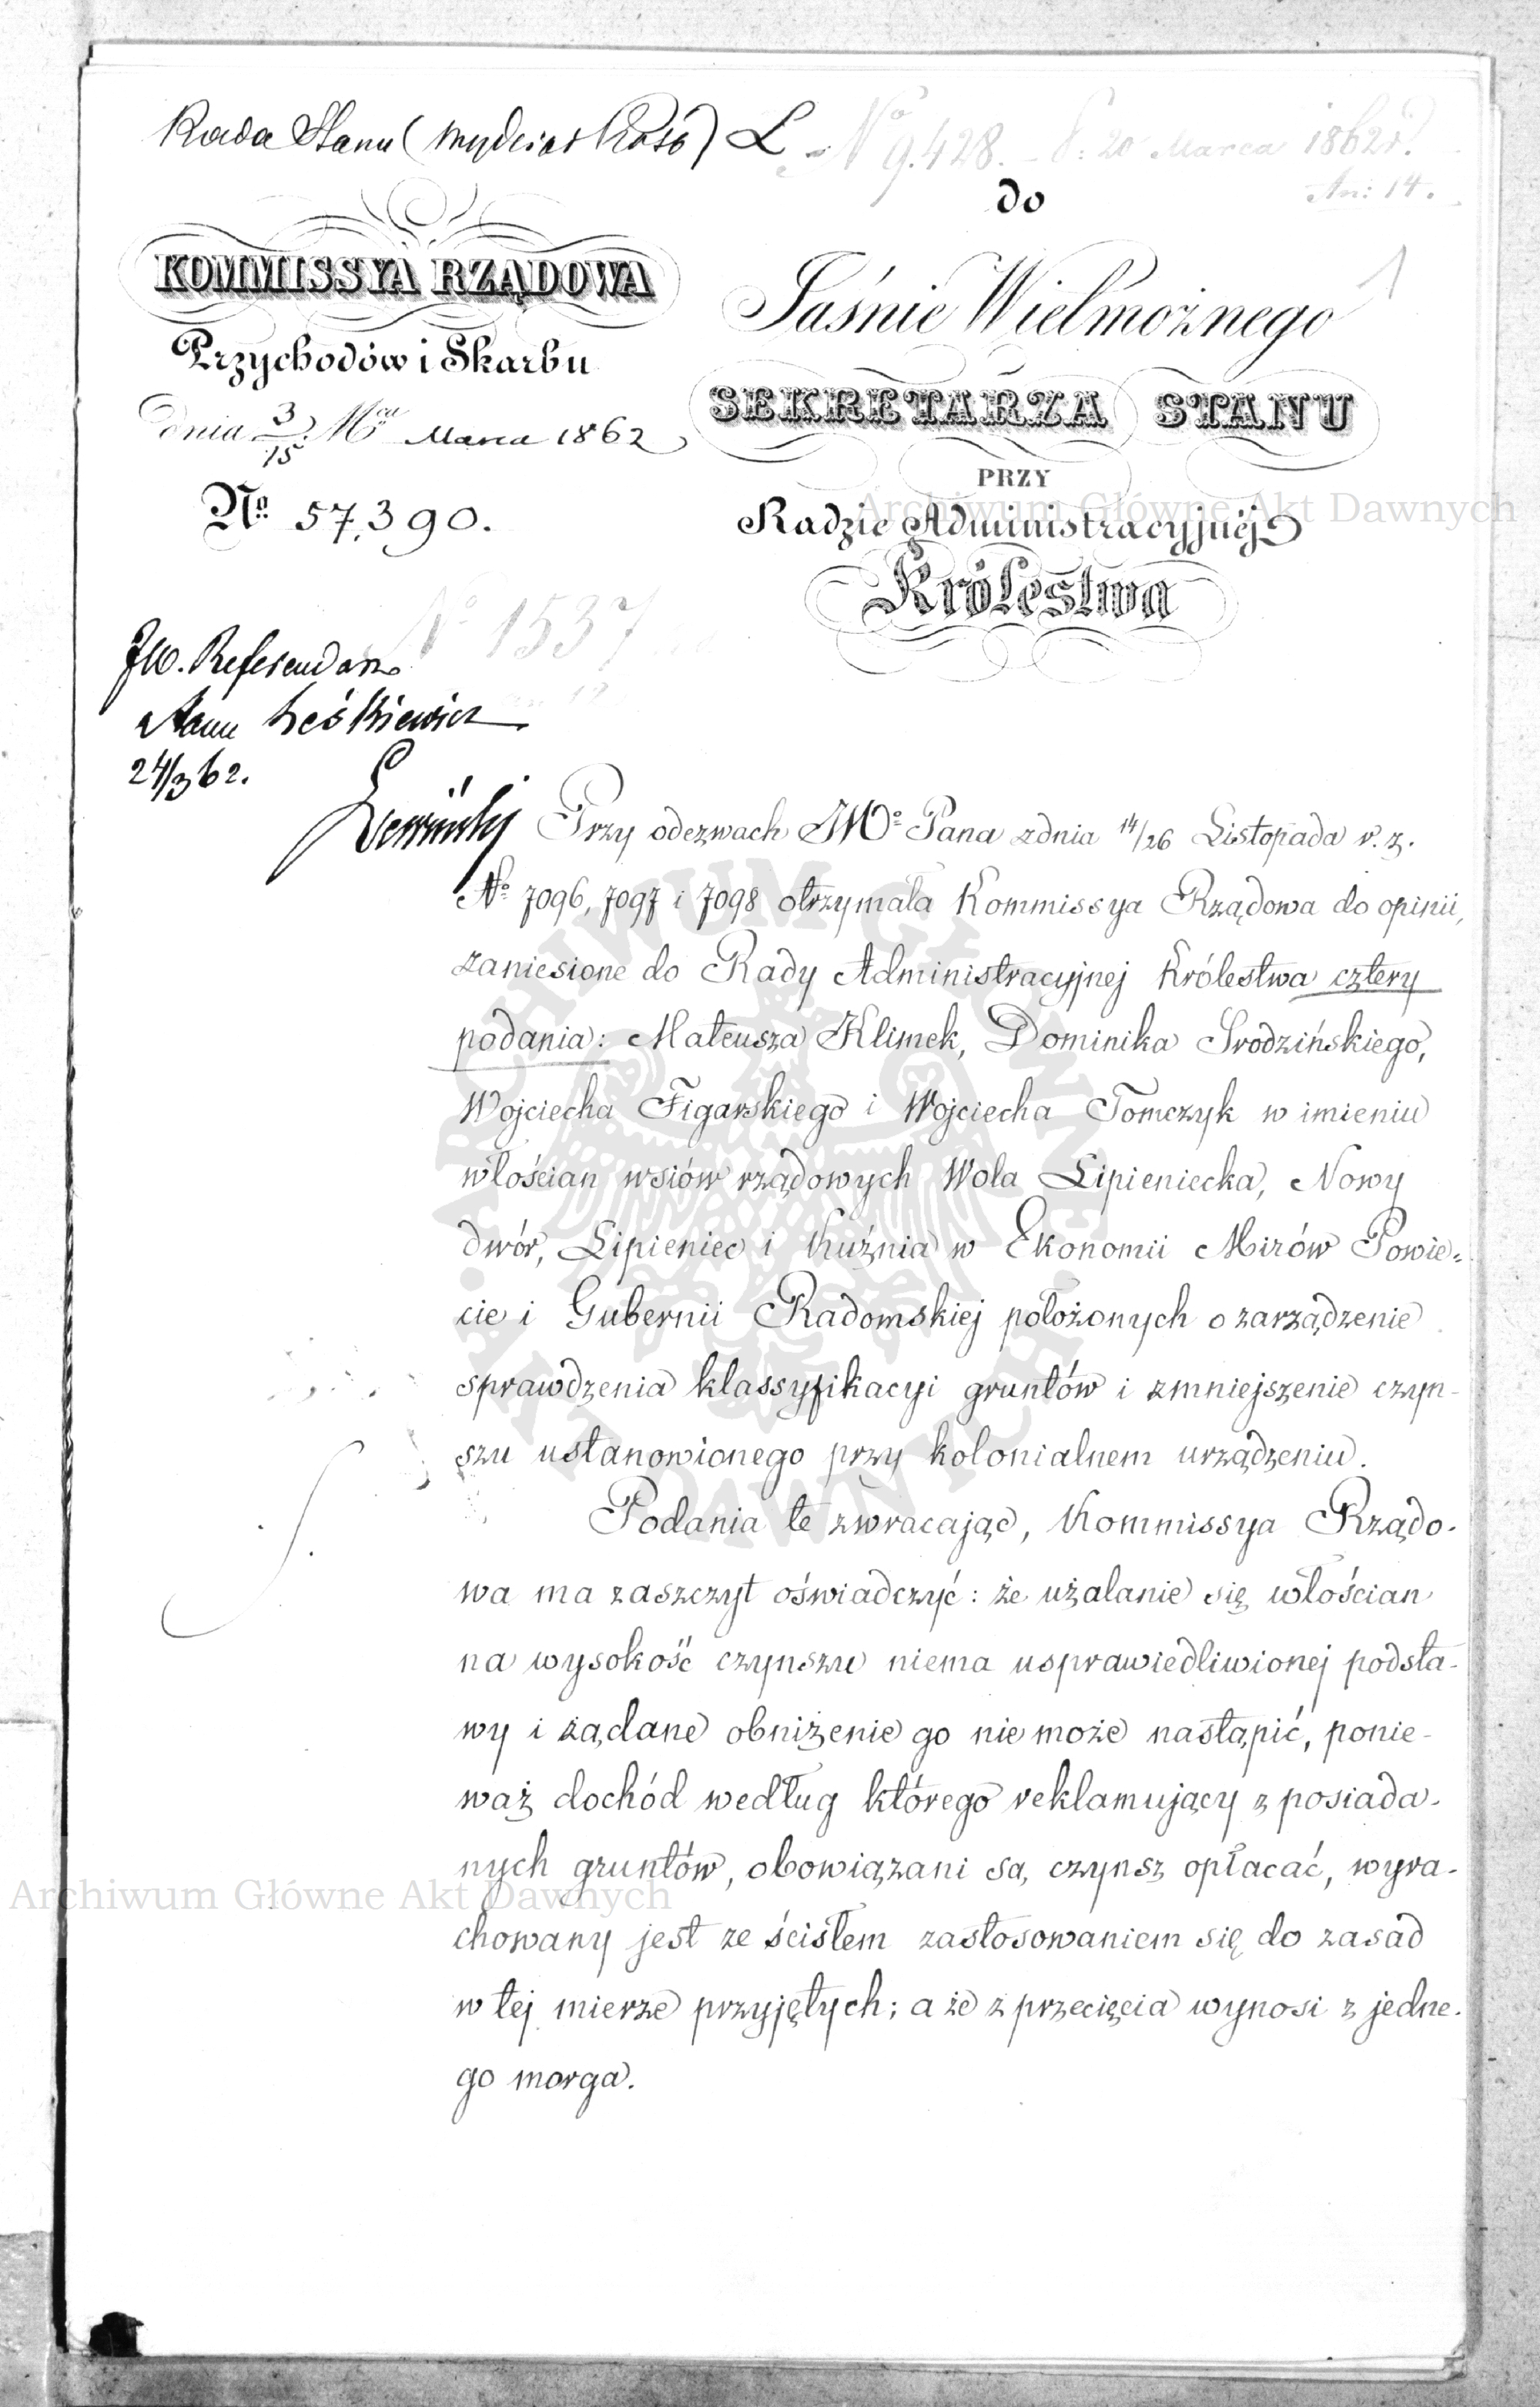 Rada Stanu (Wydział Próśb) L
No 9.428. – d: 20 Marca 1862 r.
An: 14.
do
KOMMISSYA RZĄDOWA
Przychodów i Skarbu
dnia 3/15 Mca Marca 1862
No 57,390.
Jaśnie Wielmożnego
1
SEKRETARZA STANU
PRZY
Radzie Administracyjnéj
Królestwa
No 1537
JW. Referendarz
Stanu Leśkiewicz
24/3 62.
Przy odezwach JWo Pana z dnia 14/26 Listopada r. z.
No 7096, 7097 i 7098 otrzymała Kommissya Rządowa do opinii,
zaniesione do Rady Administracyjnej Królestwa cztery
podania: Mateusza Klimek, Dominika Srodzińskiego,
Wojciecha Figarskiego i Wojciecha Tomczyk w imieniu
włościan wsiów rządowych Wola Lipieniecka, Nowy
dwór, Lipieniec i Kuźnia w Ekonomii Mirów Powie=
cie i Gubernii Radomskiej położonych o zarządzenie
sprawdzenia klassyfikacyi gruntów i zmniejszenie czyn-
szu ustanowionego przy kolonialnem urządzeniu.
Podania te zwracając, Kommissya Rządo-
wa ma zaszczyt oświadczyć: że użalanie się włościan
na wysokość czynszu niema usprawiedliwionej podsta-
wy i żądane obniżenie go nie może nastąpić, ponie-
waż dochód według którego reklamujący z posiada-
nych gruntów, obowiązani są, czynsz opłacać, wyra-
chowany jest ze ścisłem zastosowaniem się do zasad
w tej mierze przyjętych; a że z przecięcia wynosi z jedne-
go morga.
Archiwum Główne Akt Dawnych
Archiwum Główne Akt Dawnych
ARCHIWUM GŁÓWNE AKT DAWNYCH